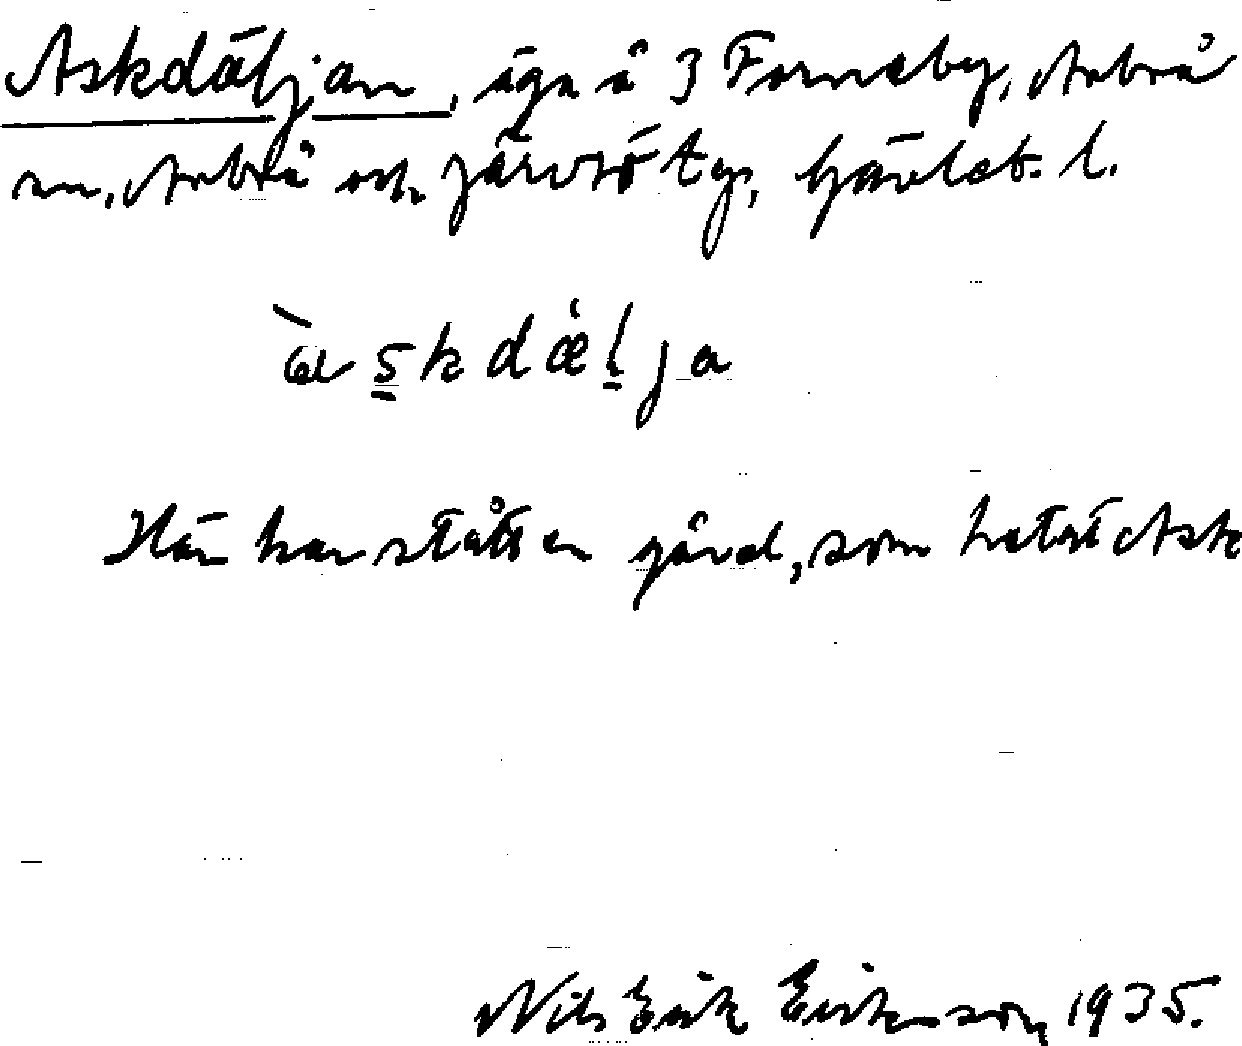 Askdäljan, äga å 3 Forneby, Arbrå
sn, Arbrå och Järvsö tg, Gävleb. l.
àskdǽlja
Här har stått en gård, som hetat Ask
Nils Erik Eriksson 1935.